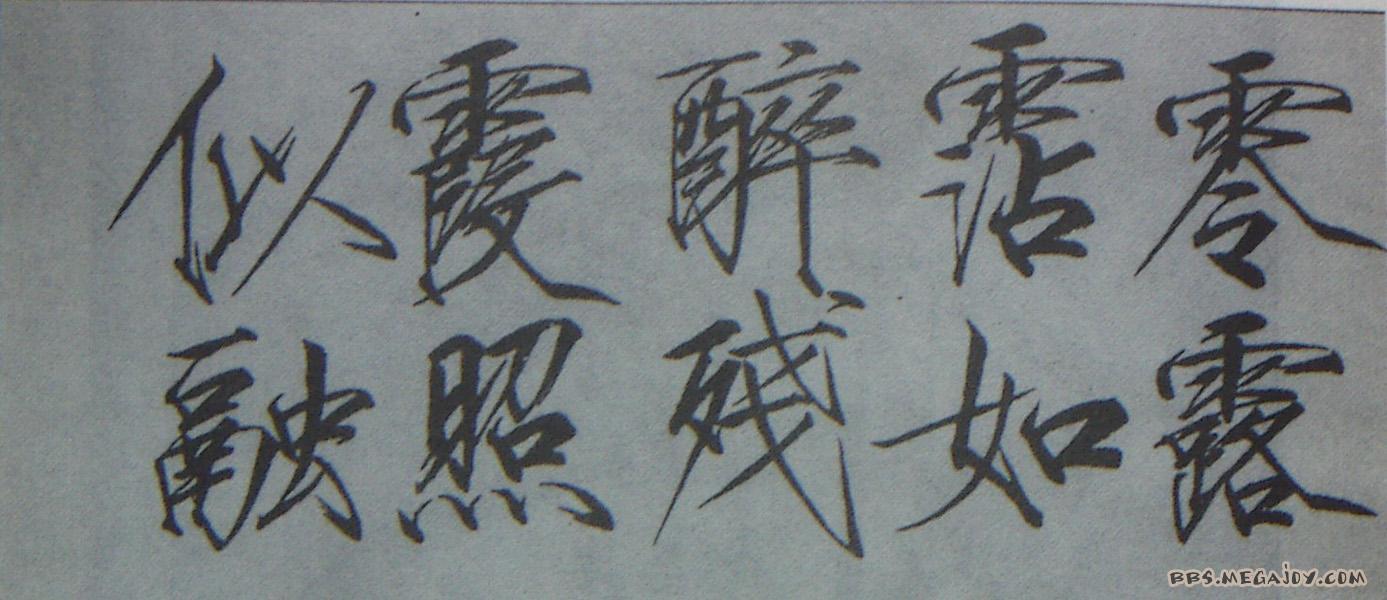 零露
霑如
醉殘
霞照
似融
BBS.MEGAJOY.COM